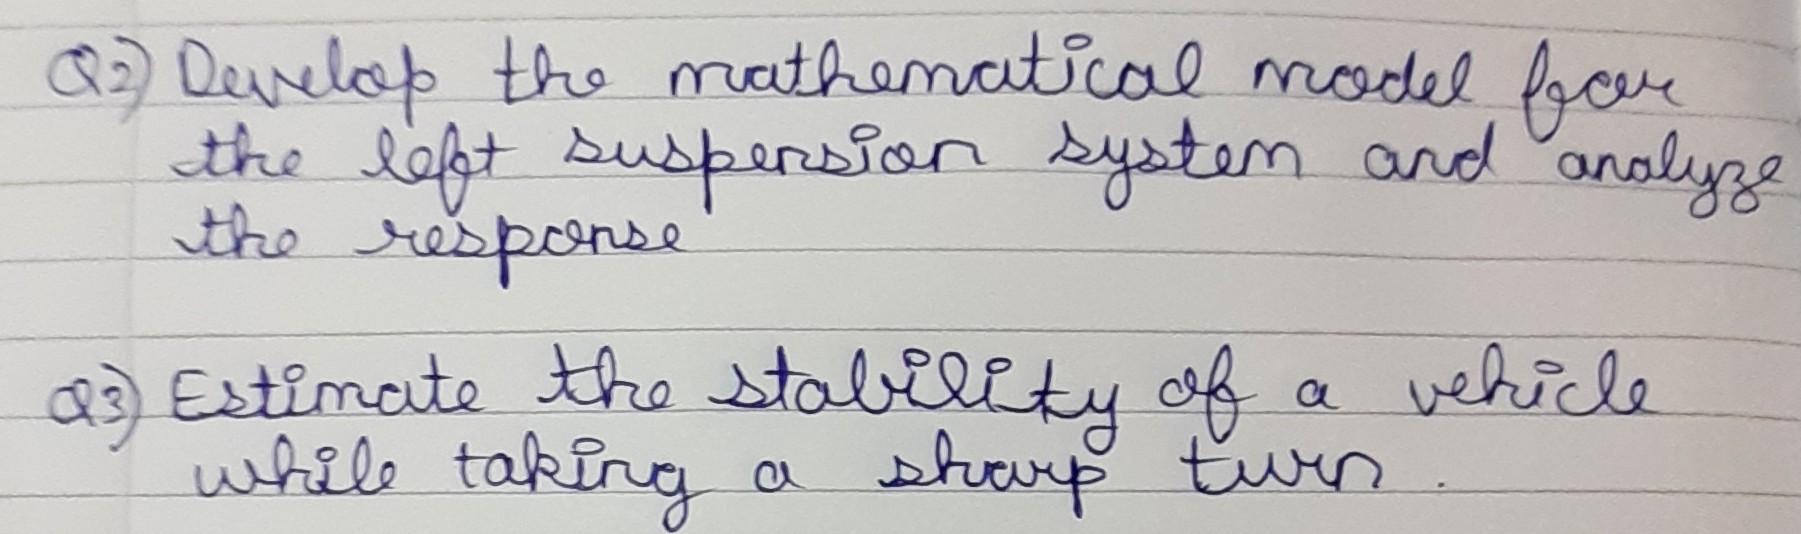 Q2) Develop the mathematical model for
the left suspension system and analyze
the response
Q3) Estimate the stability of a vehicle
while taking a sharp turn.